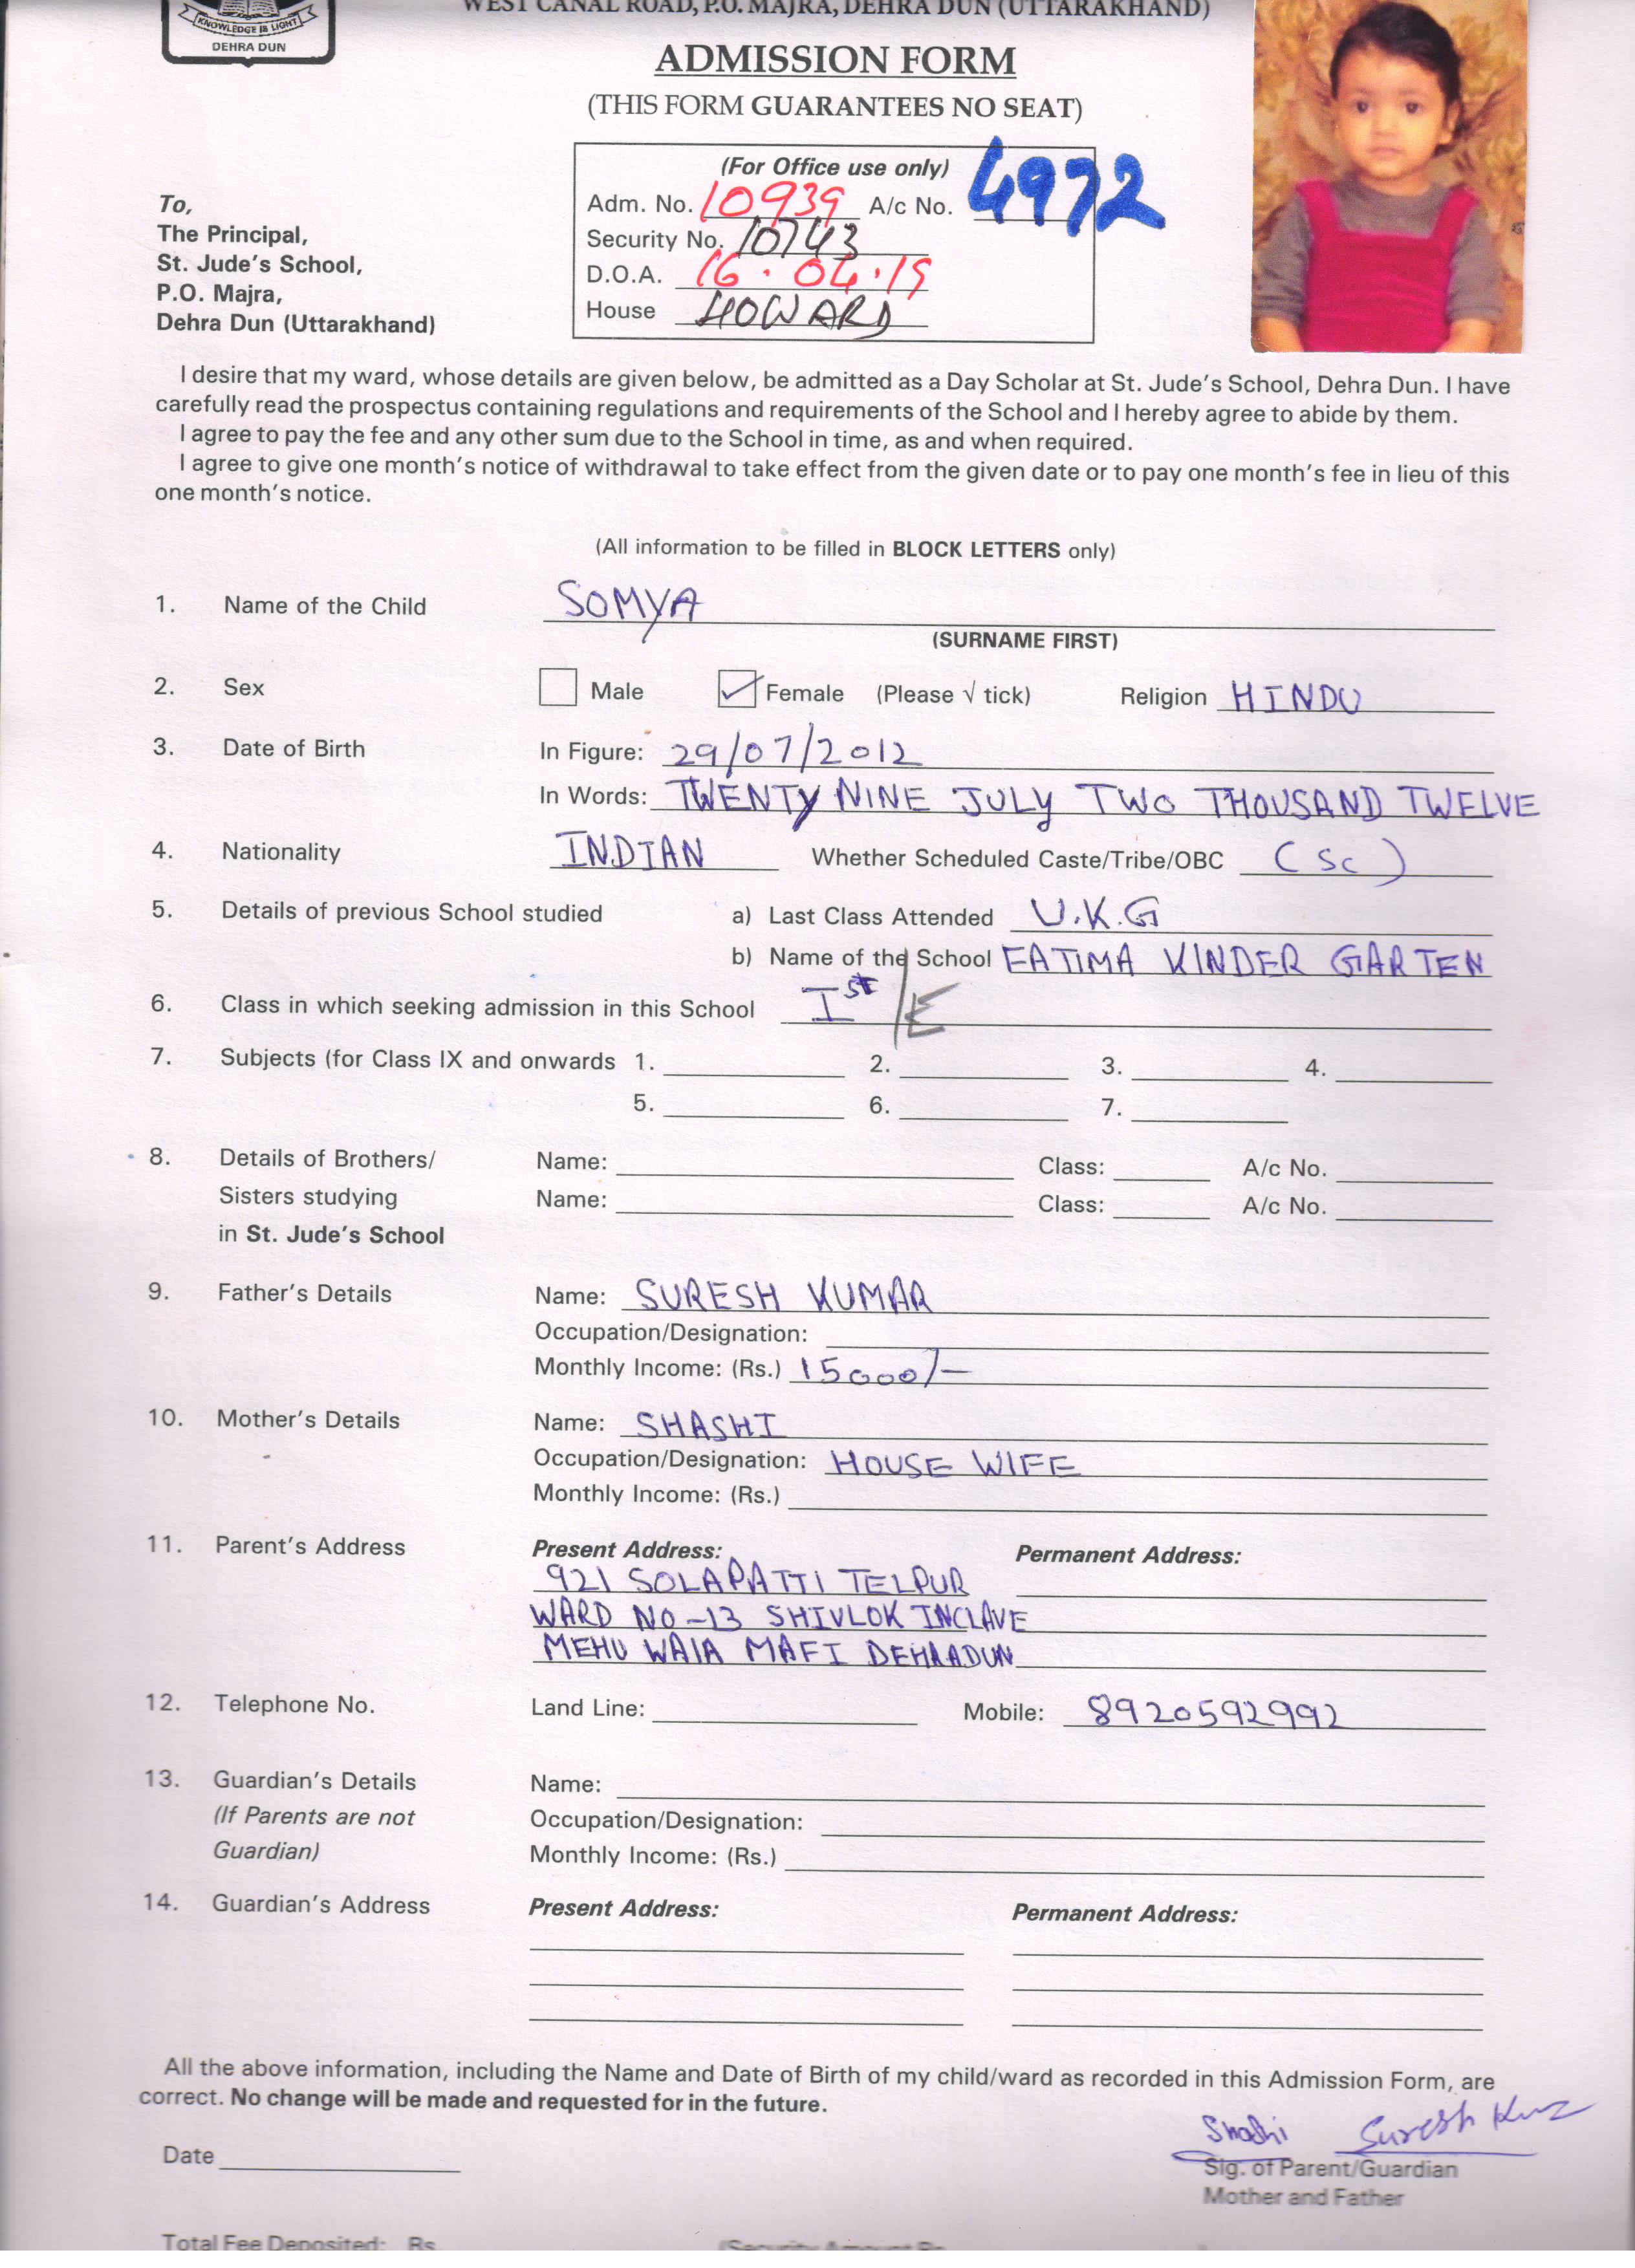 WEST CANAL ROAD, P.O. MAJRA, DEHRA DUN (UTTARAKHAND)
KNOWLEDGE IS LIGHT
DEHRA DUN
ADMISSION FORM
(THIS FORM GUARANTEES NO SEAT)
(For Office use only)
Adm. No. 10939 A/c No. 4972
Security No. 10743
D.O.A. 16.04.19
House HOWARD
To,
The Principal,
St. Jude's School,
P.O. Majra,
Dehra Dun (Uttarakhand)
I desire that my ward, whose details are given below, be admitted as a Day Scholar at St. Jude's School, Dehra Dun. I have
carefully read the prospectus containing regulations and requirements of the School and I hereby agree to abide by them.
I agree to pay the fee and any other sum due to the School in time, as and when required.
I agree to give one month's notice of withdrawal to take effect from the given date or to pay one month's fee in lieu of this
one month's notice.
(All information to be filled in BLOCK LETTERS only)
1. Name of the Child SOMYA
(SURNAME FIRST)
2. Sex Male Female (Please √ tick) Religion HINDU
3. Date of Birth In Figure: 29/07/2012
In Words: TWENTY NINE JULY TWO THOUSAND TWELVE
4. Nationality INDIAN Whether Scheduled Caste/Tribe/OBC (SC)
5. Details of previous School studied a) Last Class Attended U.K.G
b) Name of the School FATIMA KINDER GARTEN
6. Class in which seeking admission in this School Ist/E
7. Subjects (for Class IX and onwards 1. 2. 3. 4.
5. 6. 7.
8. Details of Brothers/ Name: Class: A/c No.
Sisters studying Name: Class: A/c No.
in St. Jude's School
9. Father's Details Name: SURESH KUMAR
Occupation/Designation:
Monthly Income: (Rs.) 15000/-
10. Mother's Details Name: SHASHI
Occupation/Designation: HOUSE WIFE
Monthly Income: (Rs.)
11. Parent's Address Present Address: Permanent Address:
921 SOLAPATTI TELPUR
WARD NO-13 SHIVLOK INCLAVE
MEHU WAIA MAFI DEHRADUN
12. Telephone No. Land Line: Mobile: 8920592992
13. Guardian's Details Name:
(If Parents are not Occupation/Designation:
Guardian) Monthly Income: (Rs.)
14. Guardian's Address Present Address: Permanent Address:
All the above information, including the Name and Date of Birth of my child/ward as recorded in this Admission Form, are
correct. No change will be made and requested for in the future.
Shashi Suresh
Date Sig. of Parent/Guardian
Mother and Father
Total Fee Deposited: Rs